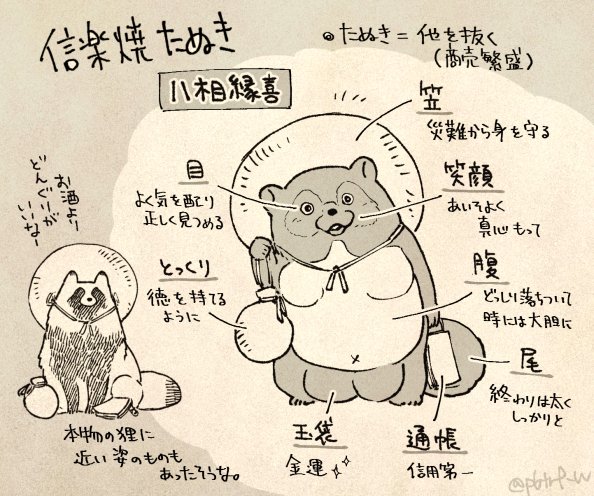 信楽焼たぬき
◎たぬき＝他を抜く
（商売繁盛）
八相縁喜
笠
災難から身を守る
目
よく気を配り
正しく見つめる
笑顔
あいそよく
真心もって
とっくり
徳を持てる
ように
腹
どっしり落ちついて
時には大胆に
尾
終わりは太く
しっかりと
玉袋
金運
通帳
信用第一
お酒より
どんぐりが
いいなー
本物の狸に
近い姿のものも
あったそうな。